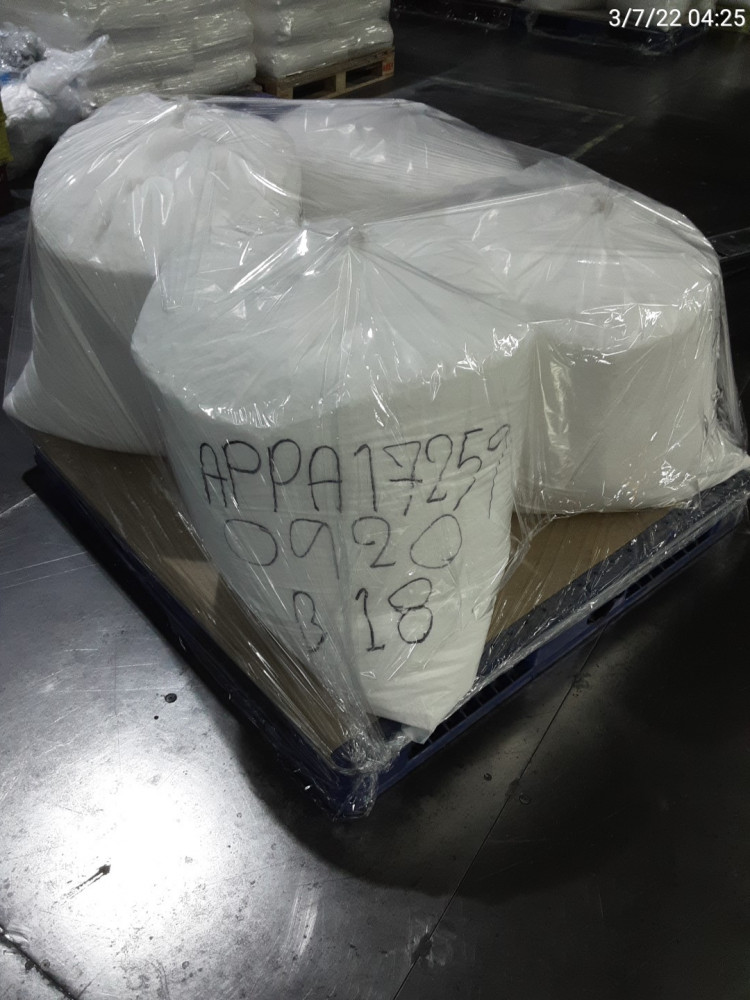 3/7/22 04:25
APPA17259
0920
B 18